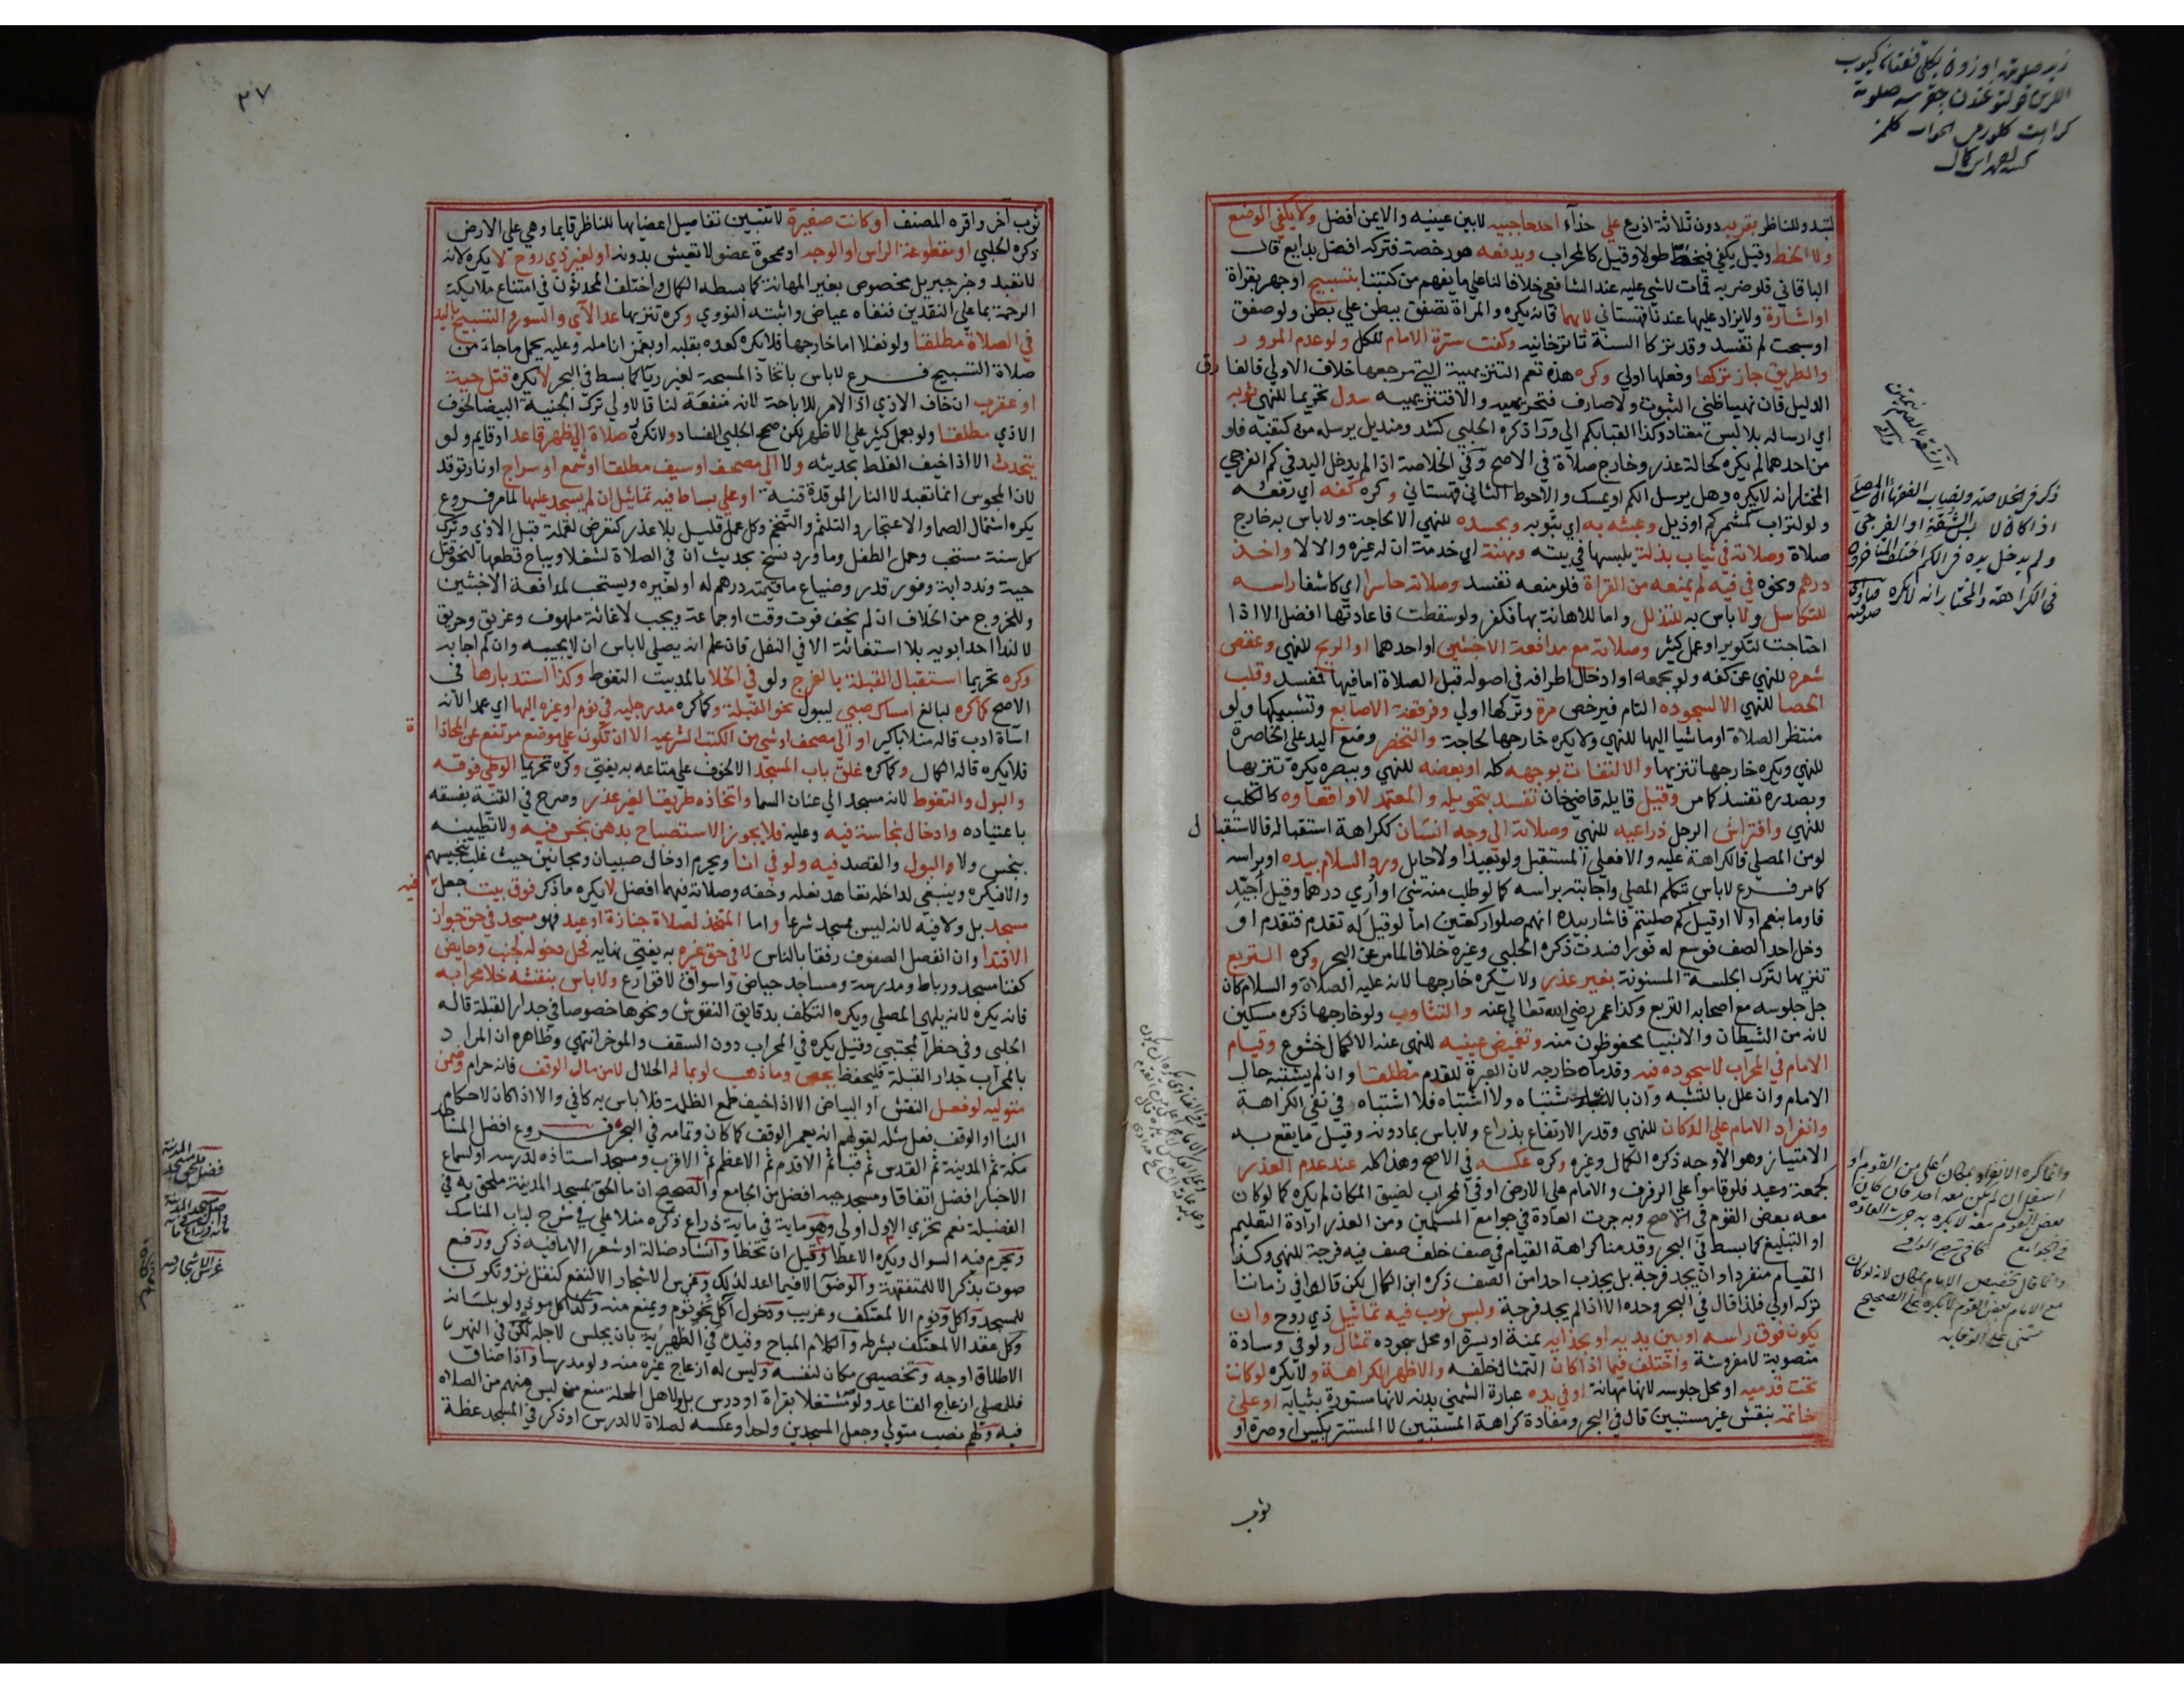 لتبدو للناظر بقربه دون ثلاثة اذرع علي حذآء احد حاجبيه لا بين عينيه والايمن افضل ولا يكفي الوضع
ولا الخط وقيل يكفي فيخط طولا وقيل كالمحراب ويدفعه هو رخصة فتركه افضل بدايع قال
الباقاني فلو ضربه فمات لا شي عليه عند الشافعي خلافا لنا علي ما يفهم من كتبنا بتسبيح او جهر بقراة
او اشارة ولا يزاد عليها عندنا قهستاني لا بهما فانه يكره والمراة تصفق ببطن علي بطن ولو صفق
او سبحت لم تفسد وقد تركا السنة تاترخانيه وكفت سترة الامام للكل ولو عدم المرور
والطريق جاز تركها وفعلها اولي وكره هذه تعم التنزيهية التي مرجعها خلاف الاولي فالفارق
الدليل فان نهيا ظني الثبوت ولا صارف فتحريميه والا فتنزيهيه سدل تحريما للنهي ثوبه
اي ارساله بلا لبس معتاد وكذا القبا بكم الي ورآ ذكره الحلبي كشد ومنديل يرسله من كتفيه فلو
من احدهما لم يكره كحالة عذر وخارج صلاة في الاصح وفي الخلاصة اذا لم يدخل اليد في كم الفرجي
المختار انه لا يكره وهل يرسل الكم او يمسك والاحوط الثاني قهستاني وكره كفه اي رفعه
ولو لتراب كمشمر كم او ذيل وعبثه به اي بثوبه وبجسده للنهي الا لحاجة ولا باس به خارج
صلاة وصلاته في ثياب بذلة يلبسها في بيته ومهنة اي خدمة ان له غيره والا لا واخذ
درهم ونحوه في فيه لم يمنعه من القراة فلو منعه تفسد وصلاته حاسرا اي كاشفا راسه
للتكاسل ولا باس به للتذلل واما للاهانة بها فكفر ولو سقطت فاعادتها افضل الا اذا
احتاجت لتكوير او عمل كثير وصلاته مع مدافعة الاخبثين او احدهما او الريح للنهي وعقص
شعره للنهي عن كفه ولو بجمعه او ادخال اطرافه في اصوله قبل الصلاة اما فيها فتفسد وقلب
الحصا للنهي الا لسجوده التام فيرخص مرة وتركها اولي وفرقعة الاصابع وتشبيكها ولو
منتظر الصلاة او ماشيا اليها للنهي ولا يكره خارجها لحاجة والتخصر وضع اليد علي الخاصرة
للنهي ويكره خارجها تنزيها والالتفات بوجهه كله او بعضه للنهي وببصره يكره تنزيها
وبصدره تفسد كما مر وقيل قايله قاضيخان تفسد بتحويله والمعتمد لا واقعاوه كالكلب
للنهي وافتراش الرجل ذراعيه للنهي وصلاته الي وجه انسان ككراهة استقباله فالاستقبال
لو من المصلي فالكراهة عليه والا فعلي المستقبل ولو بعيدا ولا حايل ورد السلام بيده او براسه
كما مر فرع لا باس بتكلم المصلي واجابته براسه كما لو طلب منه شي او اري درهما وقيل أجيّد
فاوما بنعم او لا او قيل كم صليتم فاشار بيده انهم صلوا ركعتين اما لو قيل له تقدم فتقدم او
دخل احد الصف فوسع له فورا فسدت ذكره الحلبي وغيره خلافا لما مر عن البحر وكره التربع
تنزيها لترك الجلسة المسنونة بغير عذر ولا يكره خارجها لانه عليه الصلاة والسلام كان
جل جلوسه مع اصحابه التربع وكذا عمر رضي الله تعالي عنه والتثاوب ولو خارجها ذكره مسكين
لانه من الشيطان والانبيا محفوظون منه وتغميض عينيه للنهي عنه الا لكمال خشوع وقيام
الامام في المحراب لا سجوده فيه وقدماه خارجه لان العبرة للقدم مطلقا وان لم يشتبه حال
الامام وان علل بالتشبه وان بالاشتباه ولا اشتباه فلا اشتباه في نفي الكراهة
وانفراد الامام علي الدكان للنهي وقدر الارتفاع بذراع ولا باس بما دونه وقيل ما يقع به
الامتياز وهو الاوجه ذكره الكمال وغيره وكره عكسه في الاصح وهذا كله عند عدم العذر
كجمعة وعيد فلو قاموا علي الرفوف والامام علي الارض او في المحراب لضيق المكان لم يكره كما لو كان
معه بعض القوم في الاصح وبه جرت العادة في جوامع المسلمين ومن العذر ارادة التعليم
او التبليغ كما بسط في البحر وقدمنا كراهة القيام في صف خلف صف فيه فرجة للنهي وكذا
القيام منفردا وان يجد فرجة بل يجذب احدا من الصف ذكره ابن الكمال لكن قالوا في زماننا
تركه اولي فلذا قال في البحر وحده الا اذا لم يجد فرجة ولبس ثوب فيه تماثيل ذي روح وان
يكون فوق راسه او بين يديه او بحذايه يمنة او يسرة او محل سجوده تمثال ولو في وسادة
منصوبة لا مفروشة واختلف فيما اذا كان التمثال خلفه والاظهر الكراهة ولا يكره لو كانت
تحت قدميه او محل جلوسه لانها مهانة او في يده عبارة الشمني بدنه لانها مستورة بثيابه او علي
خاتمه بنقش غير مستبين قال في البحر ومفاده كراهة المستبين لا المستتر بكيس او صرة او
ثوب
ذكر في الخلاصة ونصاب الفقها المصلي
اذا كان لابس الشقة او الفرجي
ولم يدخل يده في الكم اختلف المتاخرون
في الكراهة والمختار انه لا يكره
٣٧
ثوب آخر واقره المصنف او كانت صغيرة لا تتبين تفاصيل اعضايها للناظر قايما وهي علي الارض
ذكره الحلبي او مقطوعة الراس او الوجه او ممحوة عضو لا تعيش بدونه او لغير ذي روح لا يكره لانه
لا تعبد وخبر جبريل مخصوص بغير المهانة كما بسطه الكمال واختلف المحدثون في امتناع ملايكة
الرحمة بما علي النقدين فنفاه عياض واثبته النووي وكره تنزيها عد الآي والسور والتسبيح باليد
في الصلاة مطلقا ولو نفلا اما خارجها فلا يكره كعده بقلبه او بغمز انامله وعليه يحمل ما جاء من
صلاة التسبيح فرع لا باس باتخاذ المسبحة لغير ريآ كما بسط في البحر لا يكره قتل حية
او عقرب ان خاف الاذي اذ الامر للاباحة لانه منفعة لنا فالاولي ترك الحية البيضا لخوف
الاذي مطلقا ولو بعمل كثير علي الاظهر لكن صحح الحلبي الفساد ولا تكره صلاة الي ظهر قاعد او قايم ولو
يتحدث الا اذا خيف الغلط بحديثه ولا الي مصحف او سيف مطلقا او شمع او سراج او نار توقد
لان المجوس انما تعبد لا النار الموقدة قنية او علي بساط فيه تماثيل ان لم يسجد عليها لما مر فروع
يكره اشتمال الصما والاعتجار والتلثم والتنخم وكل عمل قليل بلا عذر كتعرض لقملة قبل الاذي وترك
كل سنة مستحب وحمل الطفل وما ورد نسخ بحديث ان في الصلاة لشغلا ويباح قطعها لنحو قتل
حية وند دابة وفور قدر وضياع ما قيمته درهم له او لغيره ويستحب لمدافعة الاخبثين
وللخروج من الخلاف ان لم يخف فوت وقت او جماعة ويجب لاغاثة ملهوف وغريق وحريق
لا لندا احد ابويه بلا استغاثة الا في النفل فان علم انه يصلي لا باس ان لا يجيبه وان لم اجابه
وكره تحريما استقبال القبلة بالفرج ولو في الخلا بالمد بيت التغوط وكذا استدبارها في
الاصح كما كره لبالغ امساك صبي ليبول نحو القبلة وكما كره مد رجليه في نوم او غيره اليها اي عمدا لانه
اساة ادب قاله منلا باكير او الي مصحف او شي من الكتب الشرعيه الا ان تكون علي موضع مرتفع عن المحاذاة
فلا يكره قاله الكمال وكما كره غلق باب المسجد الا لخوف علي متاعه به يفتي وكره تحريما الوطي فوقه
والبول والتغوط لانه مسجد الي عنان السما واتخاذه طريقا لغير عذر وصرح في القنية بفسقه
باعتياده وادخال نجاسة فيه وعليه فلا يجوز الاستصباح بدهن نجس فيه ولا تطيينه
بنجس ولا والبول والفصد فيه ولو في انا ويحرم ادخال صبيان ومجانين حيث غلب تنجيسهم
والا فيكره وينبغي لداخله تعاهد نعله وخفه وصلاته فيهما افضل لا يكره ما ذكر فوق بيت جعل فيه
مسجد بل ولا فيه لانه ليس بمسجد شرعا واما المتخذ لصلاة جنازة او عيد فهو مسجد في حق جواز
الاقتدا وان انفصل الصفوف رفقا بالناس لا في حق غيره به يفتي نهايه فحل دخوله لجنب وحايض
كفنا مسجد ورباط ومدرسة ومساجد حياض واسواق لا قوارع ولا باس بنقشه خلا محرابه
فانه يكره لانه يلهي المصلي ويكره التكلف بدقايق النقوش ونحوها خصوصا في جدار القبلة قاله
الحلبي وفي حظر المجتبي وقيل يكره في المحراب دون السقف والموخر انتهي وظاهره ان المراد
بالمحراب جدار القبلة فليحفظ بجص وما ذهب او بماله الحلال لا من مال الوقف فانه حرام وضمن
متوليه لو فعل النقش او البياض الا اذا خيف طمع الظلمة فلا باس به كافي والا اذا كان لاحكام
البنا او الوقف فعل مثله لقولهم انه يعمر الوقف كما كان وتمامه في البحر فروع افضل المساجد
مكة ثم المدينة ثم القدس ثم قبا ثم الاقدم ثم الاعظم ثم الاقرب ومسجد استاذه لدرسه او لسماع
الاخبار افضل اتفاقا ومسجد حيه افضل من الجامع والصحيح ان ما الحق بمسجد المدينة ملحق به في
الفضيلة نعم تحري الاول اولي وهو ماية في ماية ذراع ذكره منلا علي في شرح لباب المناسك
ويحرم فيه السوال ويكره الاعطا وقيل ان تخطا وانشاد ضالة او شعر الا ما فيه ذكر ورفع
صوت بذكر الا للمتفقهة والوضو الا فيما اعد لذلك وغرس الاشجار الا لنفع كتقليل نز وتكون
للمسجد واكل ونوم الا لمعتكف وغريب ودخول اكل نحو ثوم ويمنع منه وكذا كل موذ ولو بلسانه
وكل عقد الا لمعتكف بشرطه والكلام المباح وقيده في الظهيرية بان يجلس لاجله لكن في النهر
الاطلاق اوجه وتخصيص مكان لنفسه وليس له ازعاج غيره منه ولو مدرسا واذا ضاق
فللمصلي ازعاج القاعد ولو مشتغلا بقراة او درس بل ولاهل المحلة منع من ليس منهم من الصلاة
فيه ولهم نصب متولي وجعل المسجدين واحدا وعكسه لصلاة لا لدرس او ذكر في المسجد عظة